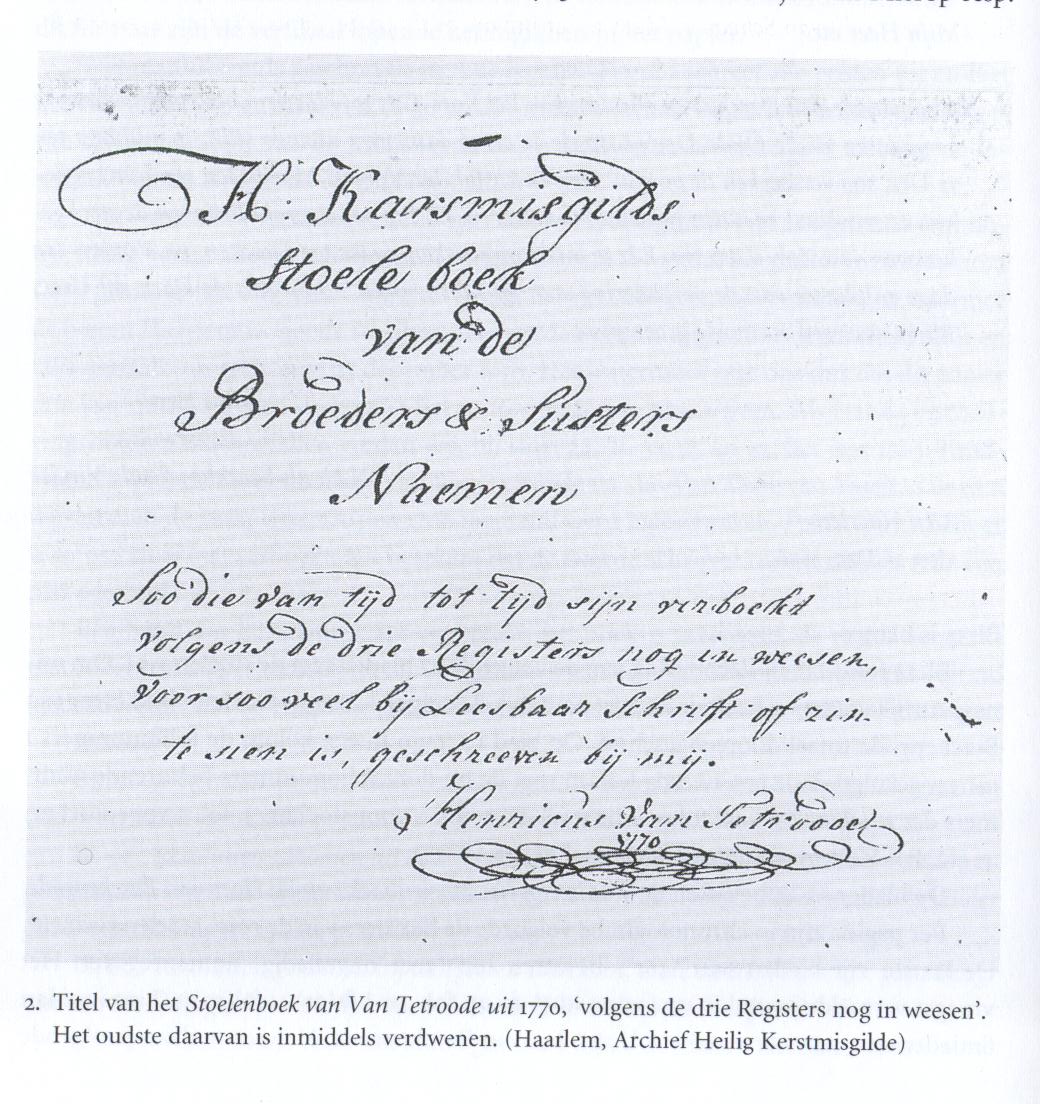 H. Karsmisgilds
stoele boek
van de
Broeders & Susters
Naemen
Soo die van tijd tot tijd sijn verboekt
volgens de drie Registers nog in weesen,
voor soo veel bij Leesbaar Schrift off zin
te sien is, geschreeven bij mij.
Henricus Van Tetroode
1770
2. Titel van het Stoelenboek van Van Tetroode uit 1770, ‘volgens de drie Registers nog in weesen’.
Het oudste daarvan is inmiddels verdwenen. (Haarlem, Archief Heilig Kerstmisgilde)